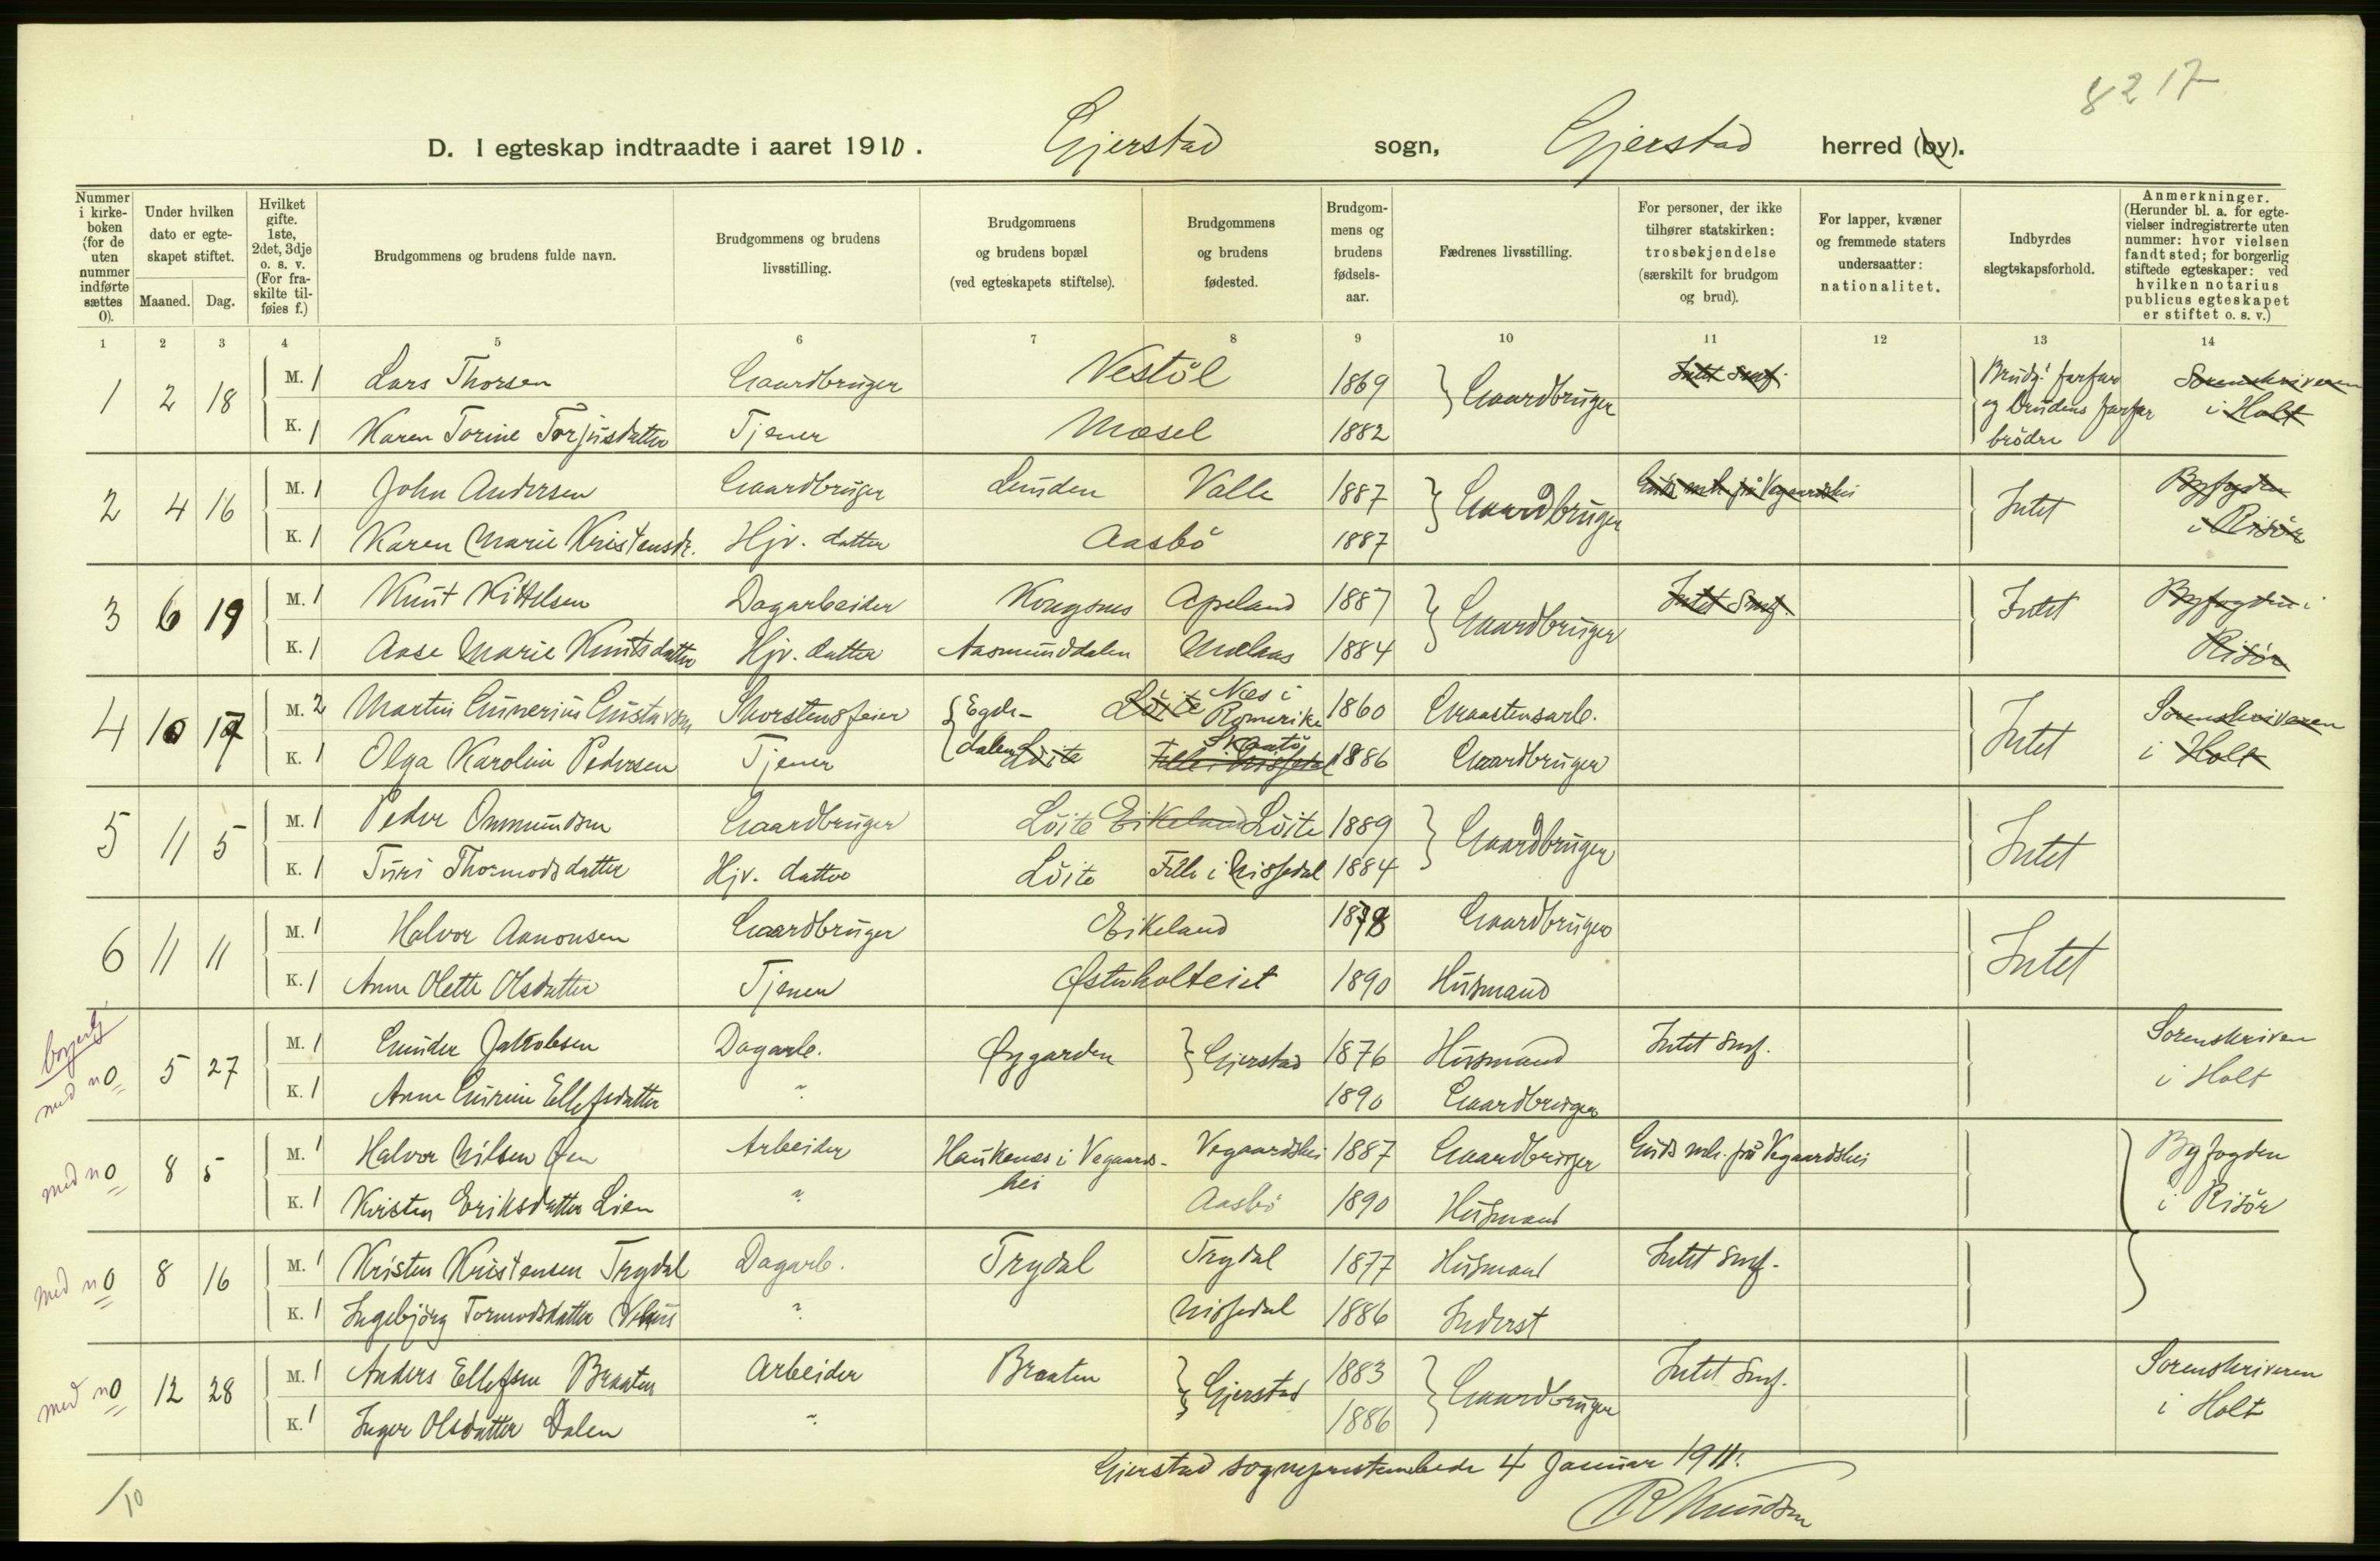 8217
D. I egteskap indtraadte i aaret 1910. Gjerstad sogn, Gjerstad herred (by).
Nummer i kirkeboken (for de uten nummer indførte sættes 0).
Under hvilken dato er egteskapet stiftet.
Maaned. Dag.
Hvilket gifte. 1ste, 2det, 3dje o. s. v. (For fraskilte tilføies f.)
Brudgommens og brudens fulde navn.
Brudgommens og brudens livsstilling.
Brudgommens og brudens bopæl (ved egteskapets stiftelse).
Brudgommens og brudens fødested.
Brudgommens og brudens fødselsaar.
Fædrenes livsstilling.
For personer, der ikke tilhører statskirken: trosbekjendelse (særskilt for brudgom og brud).
For lapper, kvæner og fremmede staters undersaatter: nationalitet.
Indbyrdes slegtskapsforhold.
Anmerkninger. (Herunder bl. a. for egtevielser indregistrerte uten nummer: hvor vielsen fandt sted; for borgerlig stiftede egteskaper: ved hvilken notarius publicus egteskapet er stiftet o. s. v.)
1 2 3 4 5 6 7 8 9 10 11 12 13 14
1 2 18 M. 1 Lars Thorsen Gaardbruger Vestöl 1869 } Gaardbruger Intet Smf. Brudg. farfar og brudens farfar brödre Sorenskriveren i Holt
K. 1 Karen Torine Torjusdatter Tjener Mosel 1882
2 4 16 M. 1 John Andersen Gaardbruger Lunden Valle 1887 } Gaardbruger Guds mh. på Vegaardshei Intet Byfogden i Risör
K. 1 Karen Marie Kristensdr. Hjv. datter Aasbö 1887
3 6 19 M. 1 Knut Kittelsen Dagarbeider Kongsnes Apeland 1887 } Gaardbruger Intet Smf. Intet Byfogden i Risör
K. 1 Aase Marie Knutsdatter Hjv. datter Aasmunddalen Molaas 1884
4 10 17 M. 2 Martin Gunerius Gustavsen Skorstensfeier Egdedalen Löite Næs i Romerike 1860 Graastensarb. Intet Sorenskriveren i Holt
K. 1 Olga Karolin Pedersen Tjener Löite Skaatö Felle i Nissedal 1886 Gaardbruger
5 11 5 M. 1 Peder Ommundsen Gaardbruger Löite Eikeland Löite 1889 } Gaardbruger Intet
K. 1 Turi Thormodsdatter Hjv. datter Löite Felle i Nissedal 1884
6 11 11 M. 1 Halvor Aanonsen Gaardbruger Eikeland 1878 Gaardbruger Intet
K. 1 Anne Olette Olsdatter Tjener Østerholteiet 1890 Husmand
borgerlig
med no 5 27 M. 1 Gunder Jakobsen Dagarb. Øygarden } Gjerstad 1876 Husmand Intet Smf. Sorenskriven i Holt
K. 1 Anne Gurine Ellefsdatter " 1890 Gaardbruger
med no 8 5 M. 1 Halvor Nilsen Øen Arbeider Haukenes i Vegaardshei Vegaardshei 1887 Gaardbruger Guds mh. på Vegaardshei } Byfogden i Risör
K. 1 Kirsten Eriksdatter Lien " Aasbö 1890 Husmand
med no 8 16 M. 1 Kristen Kristensen Trydal Dagarb. Trydal Trydal 1877 Husmand Intet Smf.
K. 1 Ingebjörg Tormodsdatter " Nissedal 1886 Inderst
med no 12 28 M. 1 Anders Ellefsen Braaten Arbeider Braaten } Gjerstad 1883 } Gaardbruger Intet Smf. Sorenskriveren i Holt
K. 1 Inger Olsdatter Dalen " 1886
Gjerstad sogneprestembede 4 Januar 1911.
R Knudsen
/10